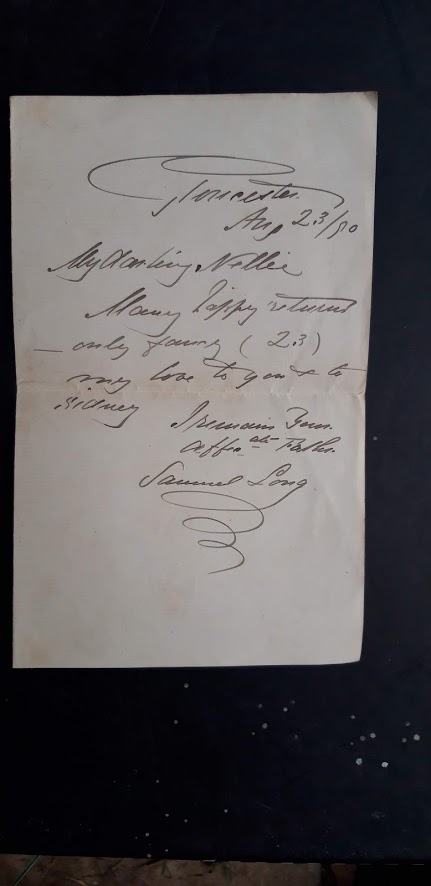 Gloucester.
Aug 23/90
My darling Nellie
Many happy returns
— only fancy (23)
my love to you & to
Sidney
I remain Your
Affec ate Fathr.
Samuel Long